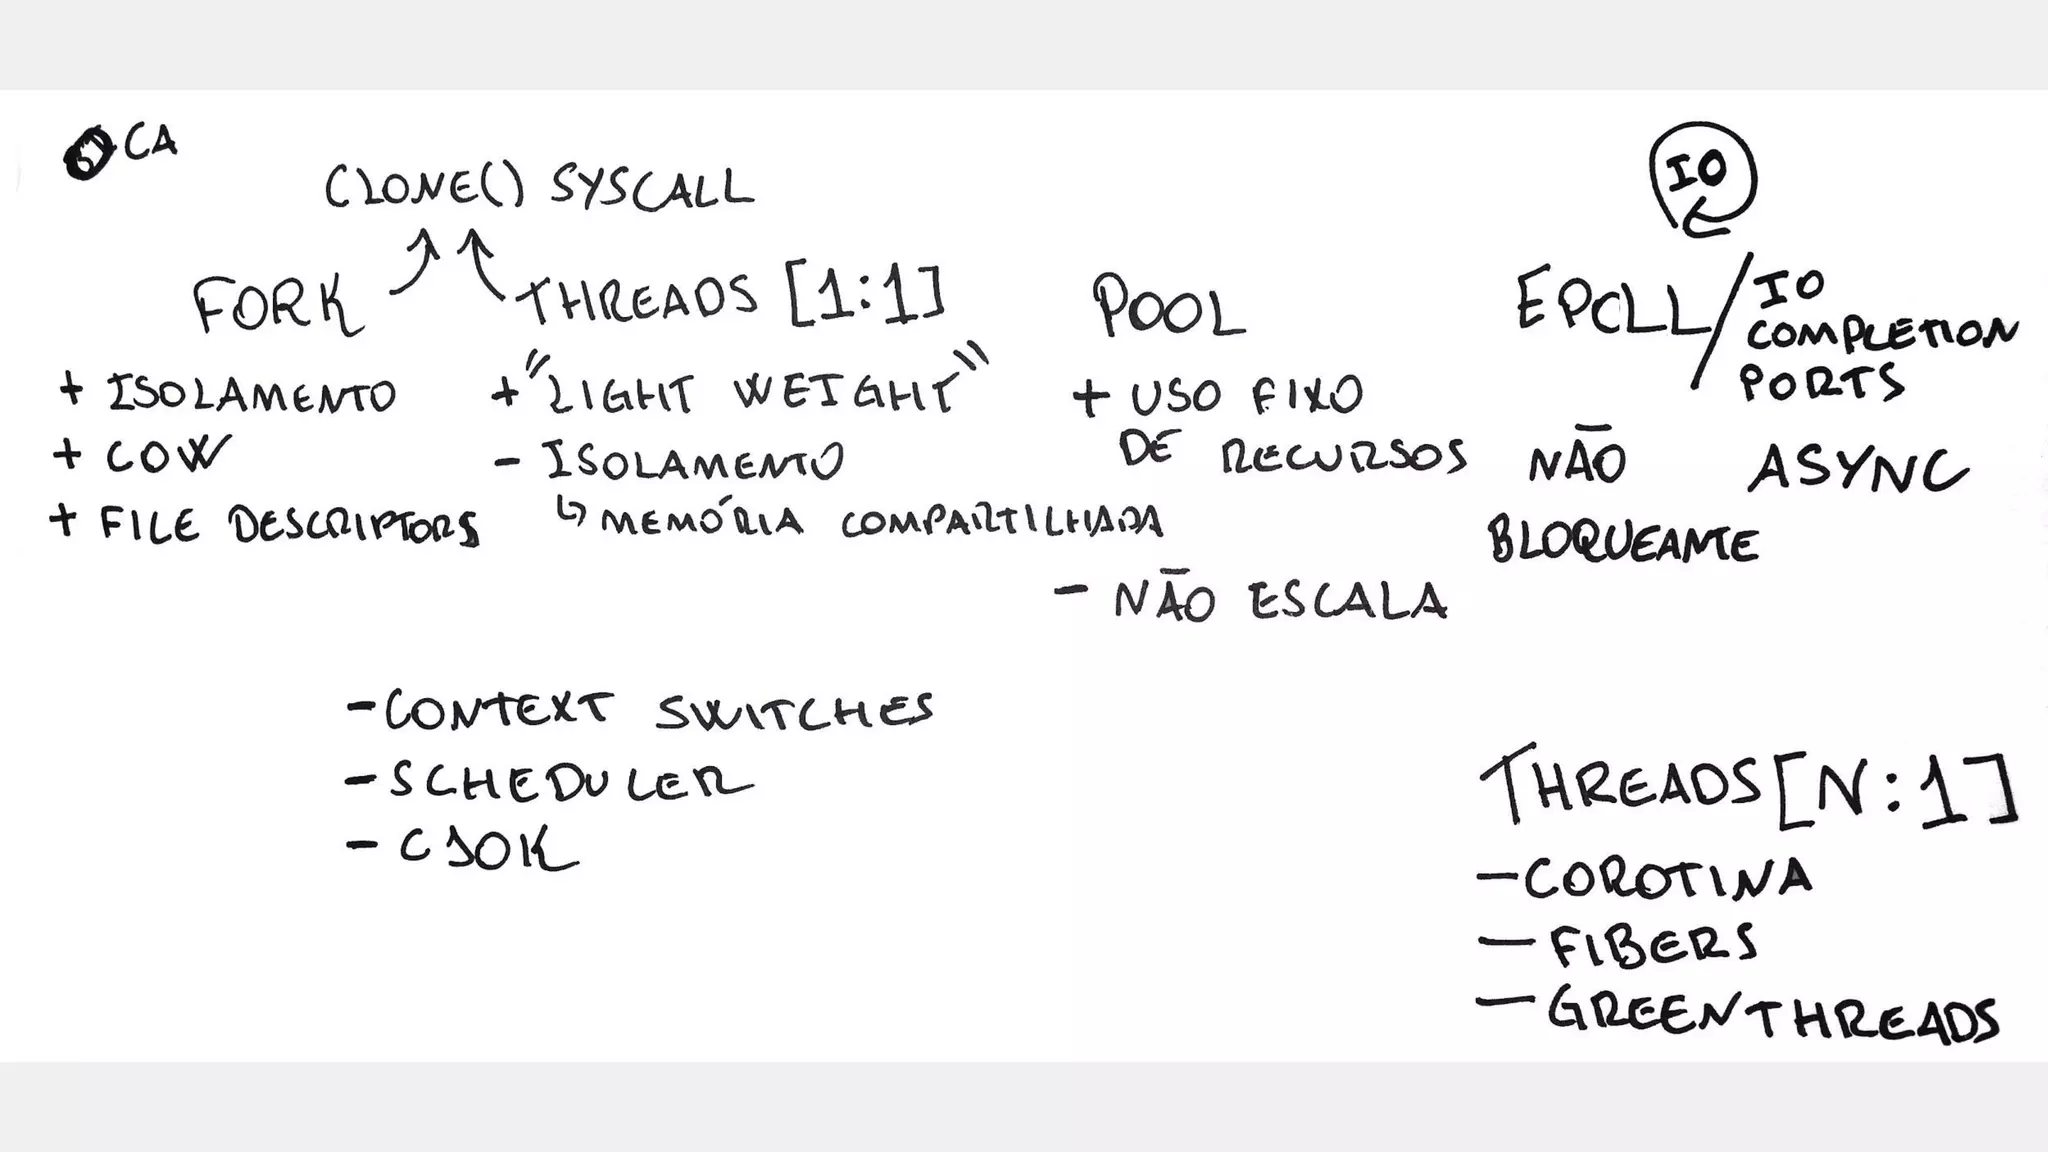 CA
IO
CLONE() SYSCALL
FORK
THREADS [1:1]
POOL
EPOLL/
IO
COMPLETION
PORTS
+ ISOLAMENTO
+ COW
+ FILE DESCRIPTORS
+ "LIGHT WEIGHT"
- ISOLAMENTO
↳ MEMÓRIA COMPARTILHADA
+ USO FIXO
DE RECURSOS
- NÃO ESCALA
NÃO
BLOQUEANTE
ASYNC
- CONTEXT SWITCHES
- SCHEDULER
- C10K
THREADS [N:1]
- COROTINA
- FIBERS
- GREENTHREADS